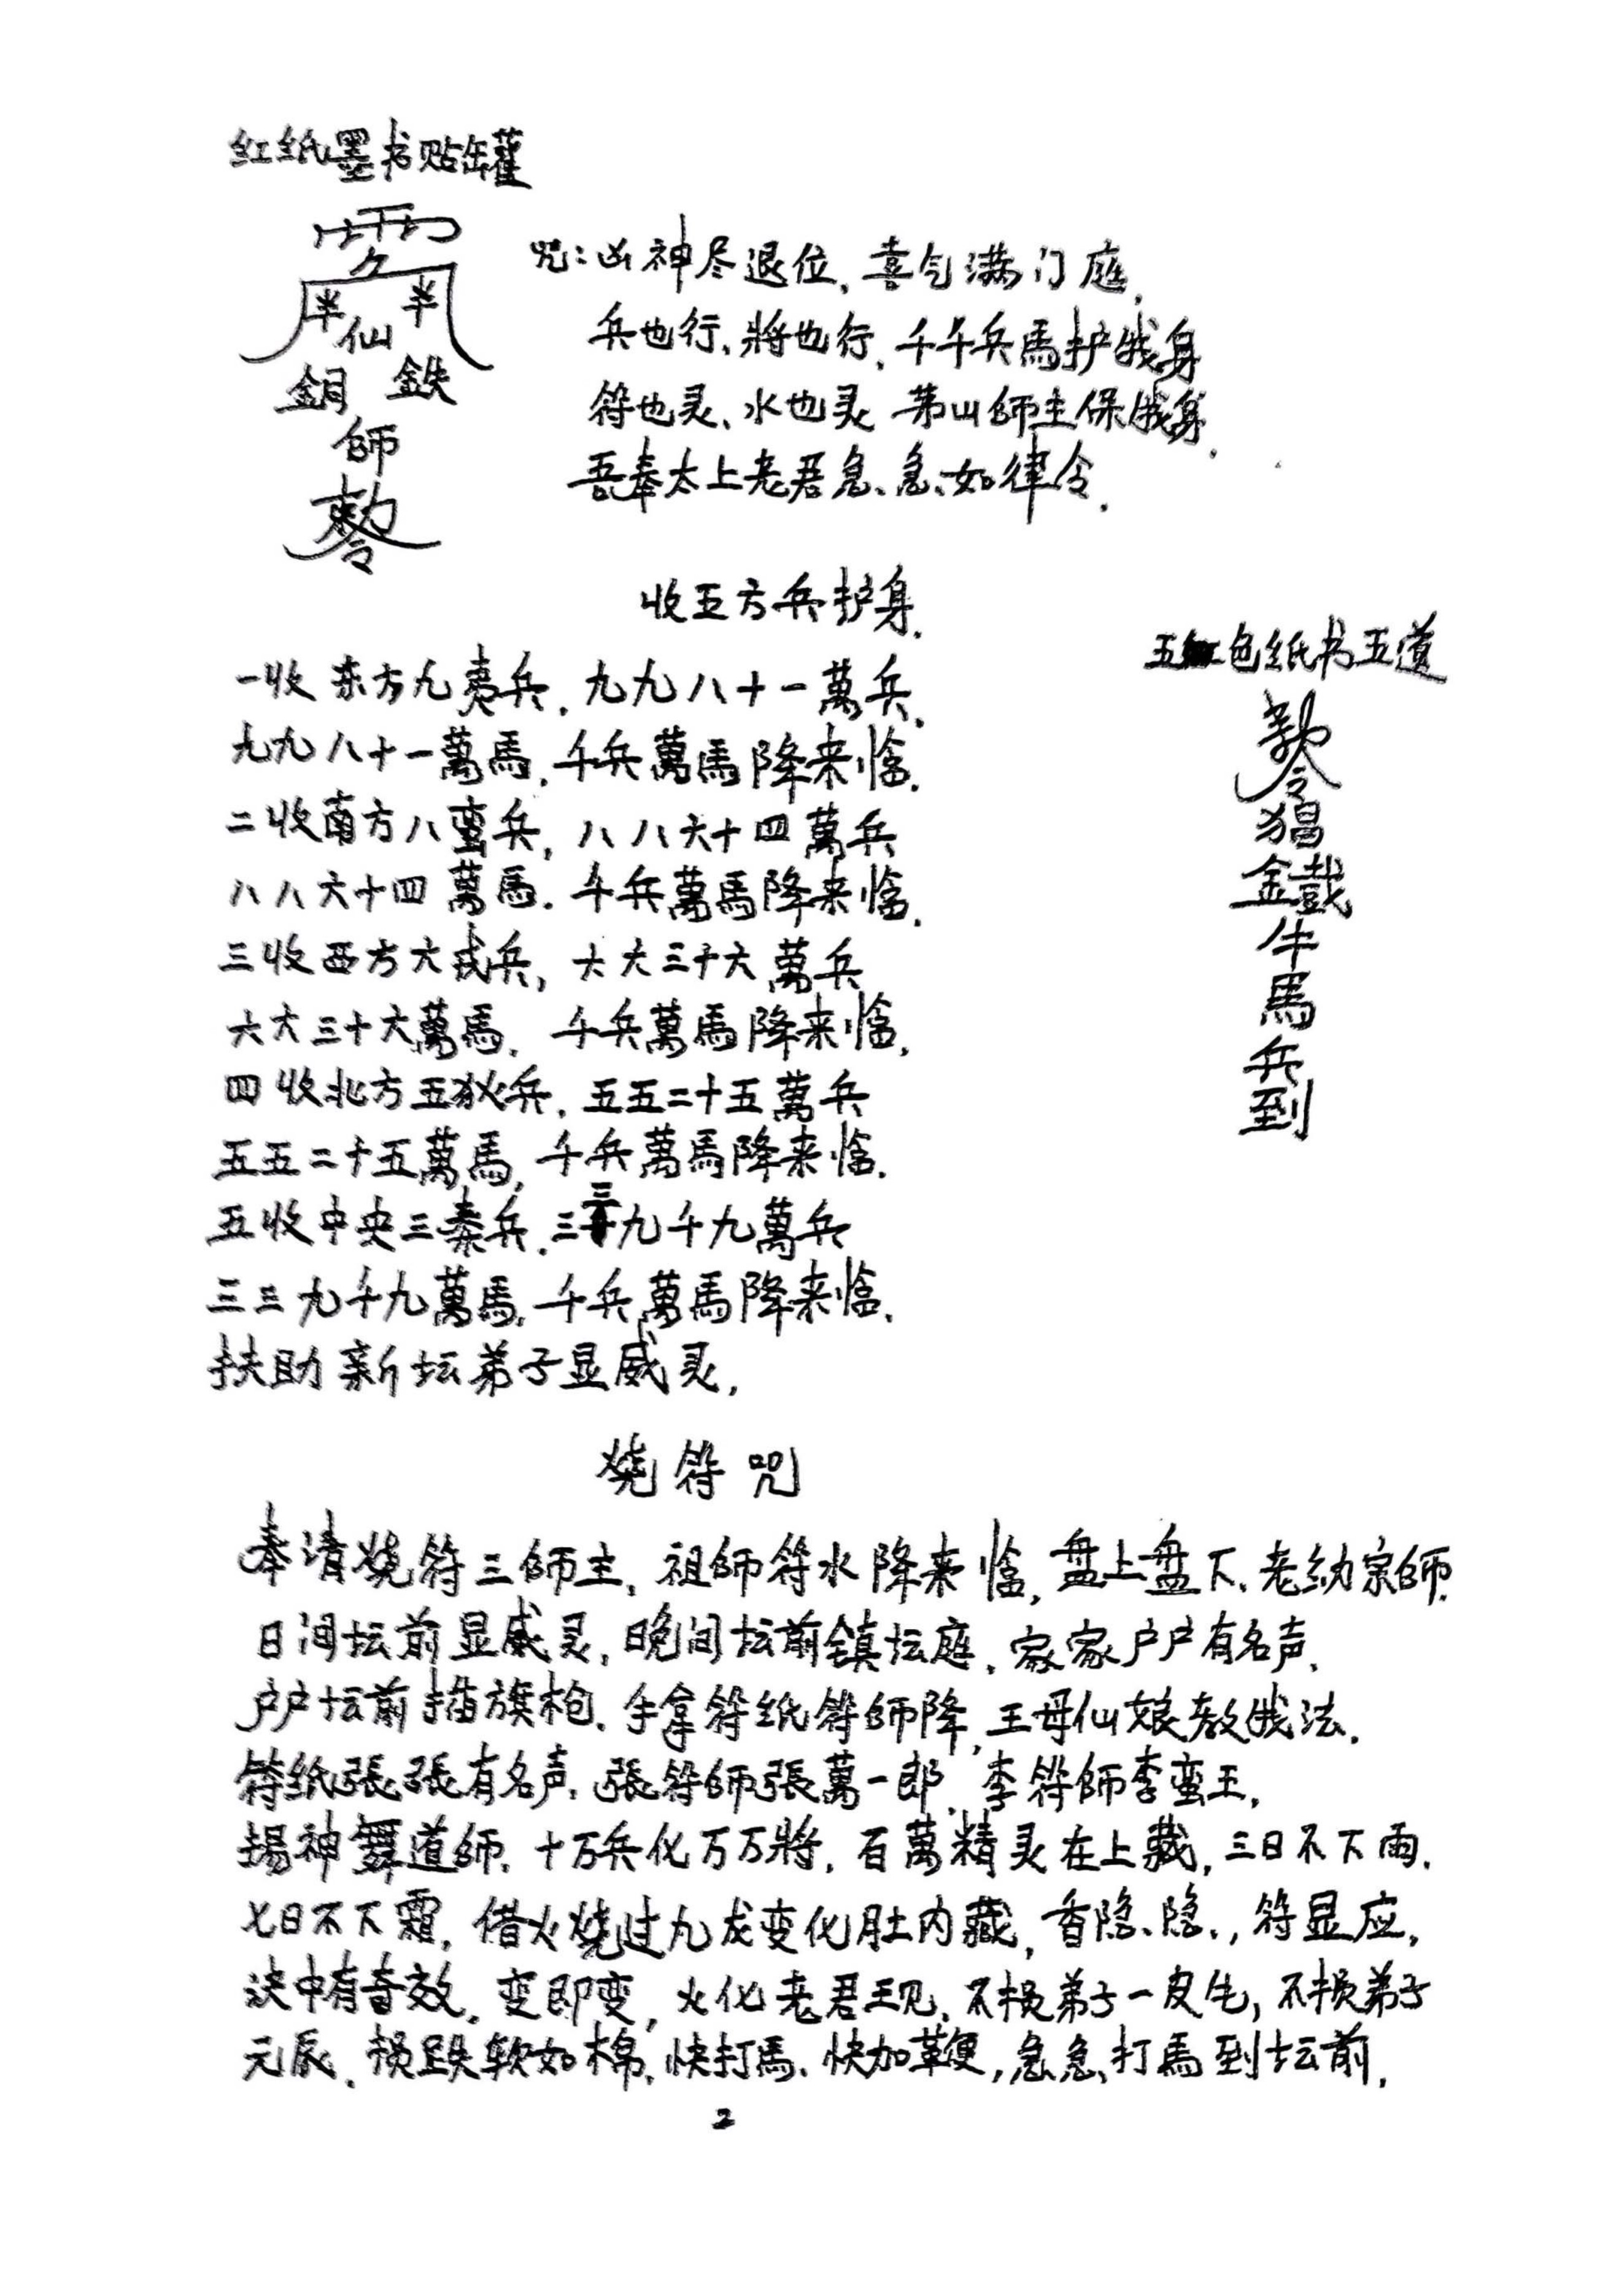 红纸墨书贴罐
半 仙 半
鐵
師
敕令
咒:凶神尽退位,喜气满门庭,
兵也行、將也行,千千兵馬护我身
符也灵、水也灵 茅山師主保我身,
吾奉太上老君急、急、如律令.
收五方兵护身.
一收东方九夷兵,九九八十一萬兵,
九九八十一萬馬,千兵萬馬降来临.
二收南方八蛮兵,八八六十四萬兵
八八六十四萬馬.千兵萬馬降来临.
三收西方六戎兵,六六三十六萬兵
六六三十六萬馬,千兵萬馬降来临,
四收北方五狄兵,五五二十五萬兵
五五二十五萬馬,千兵萬馬降来临.
五收中央三秦兵,三三九千九萬兵
三三九千九萬馬,千兵萬馬降来临.
扶助新坛弟子显威灵,
五色纸书五道
敕令
猖
金戟
牛
馬
兵
到
烧符咒
奉请烧符三師主,祖師符水降来临,盘上盘下、老幼宗師.
日间坛前显威灵,晚间坛前鎮坛庭,家家户户有名声,
户户坛前插旗枪.手拿符纸符師降,王母仙娘教我法.
符纸張張有名声,張符師張萬一郎,李符師李蛮王,
揚神舞道師.十万兵化万万將,百萬精灵在上藏,三日不下雨.
七日不下霜,借火烧过九龙变化肚内藏,香隐、隐、,符显应,
決中有奇效,变即变,火化老君王现,不损弟子一皮毛,不损弟子
元辰、损跌軟如棉,快打馬.快加鞭,急急、打馬到坛前,
2